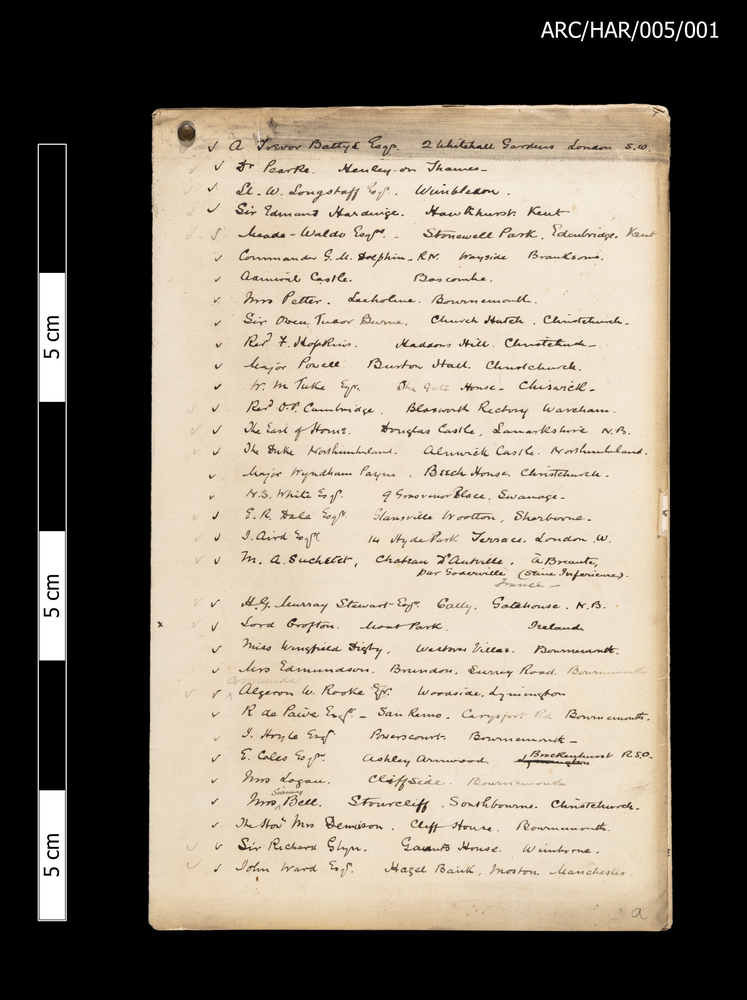 ARC/HAR/005/001
5 cm
5 cm
5 cm
✓ A Trevor Battye Esqr. 2 Whitehall Gardens London S.W.
✓ Dr Pearke. Henley-on Thames-
✓ Lt. W. Longstaff Esqr. Wimbledon.
✓ Sir Edmund Hardinge. Hawkhurst. Kent
✓ Meade-Waldo Esqr. - Stonewell Park. Edenbridge. Kent
✓ Commander G. M. Dolphin-R.N. Wayside Branksome.
✓ Admiral Castle. Boscombe.
✓ Mrs Petter. Bournemouth.
✓ Sir Owen Tudor Burne. Church Hatch. Christchurch-
✓ Revd F. Hopkins. Haddons Hill. Christchurch-
✓ Major Powell Burton Hall. Christchurch.
✓ W. M Tuke Esqr. The Gate House- Chiswick-
✓ Revd O.P. Cambridge. Bloxworth Rectory Wareham.
✓ The Earl of Home. Douglas Castle, Lanarkshire N.B.
✓ The Duke Northumberland. Alnwick Castle. Northumberland.
✓ Major Wyndham Payne. Beech House. Christchurch.
✓ H.S. White Esqr. 9 Grosvenor Place, Swanage-
✓ E. R. Dale Esqr. Glansville Wootton, Sherborne-
✓ J. Aird Esqr. 14 Hyde Park Terrace. London. W.
✓ M. A. Suchetet, Chateau D'Antville. à Breauté,
par Goderville (Seine Inferieure).
France-
✓ H.G. Murray Stewart Esqr. Cally. Gatehouse. N.B.
x ✓ Lord Crofton. Moat Park. Ireland
✓ Miss Wingfield Digby, Western Villas. Bournemouth.
✓ Mrs Edmundson. Brundon. Surrey Road. Bournemouth
✓ Algeron W. Rooke Esqr. Woodside. Lymington
✓ R de Paiva Esqr - San Remo. Carysfort Rd Bournemouth.
✓ J. Hoyle Esqr Powerscourt. Bournemouth-
✓ E. Coles Esqr. Ashley Arnwood. Lymington Brockenhurst R.S.O.
✓ Mrs Logan. Cliff Side. Bournemouth
✓ Mrs Bell. Stourcliff. Southbourne. Christchurch.
✓ The Honl Mrs Denison. Cliff House. Bournemouth.
✓ Sir Richard Glyn. Gaunts House. Wimborne.
✓ John Ward Esqr. Hazel Bank, Moston Manchester.
a